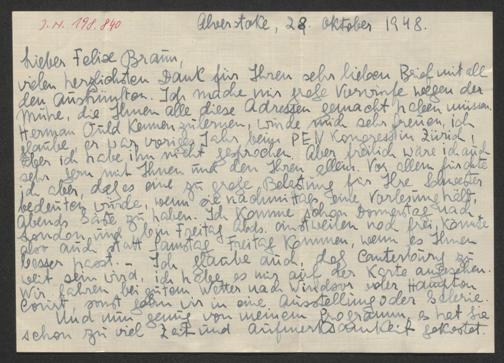 J.N. 198.840
Alverstoke, 28. Oktober 1948.
Lieber Felix Braun,
vielen herzlichsten Dank für Ihren sehr lieben Brief mit all
den Auskünften. Ich mache mir große Vorwürfe wegen der
Mühe, die Ihnen alle diese Adressen gemacht haben müssen.
Herman Ould kennenzulernen, würde mich sehr freuen, ich
glaube er war voriges Jahr beim PEN Kongress in Zürich,
aber ich habe ihn nicht gesprochen. Aber freilich wäre ich auch
sehr gern mit Ihnen und den Ihren allein. Vor allem fürchte
ich aber, daß es eine zu große Belastung für Ihre Schwester
bedeuten würde, wenn sie nachmittags eine Vorlesung hält,
Abends Gäste zu haben. Ich komme schon Donnerstag nach
London, und bin Freitag Abds. einstweilen noch frei, könnte
also auch statt Samstag Freitag kommen, wenn es Ihnen
besser passt. – Ich glaube auch, daß Canterbury zu
weit sein wird, ich habe es mir auf der Karte angesehen.
Wir fahren bei gutem Wetter nach Windsor oder Hampton
Court, sonst gehn wir in eine Ausstellung oder Galerie.
Und nun genug von meinem Programm, es hat Sie
schon zu viel Zeit und Aufmerksamkeit gekostet.